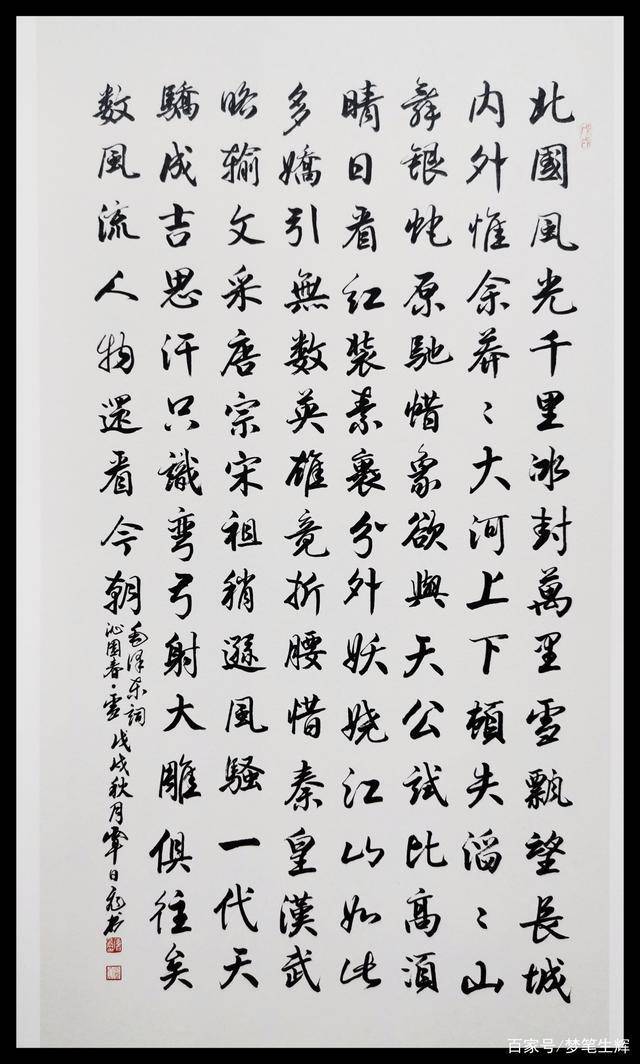 北國風光千里冰封萬里雪飄望長城
内外惟余莽〻大河上下頓失滔〻山
舞银蛇原馳蜡象欲與天公試比高須
晴日看红装素裹分外妖娆江山如此
多嬌引無數英雄竟折腰惜秦皇漢武
略输文采唐宗宋祖稍遜風騷一代天
驕成吉思汗只識彎弓射大雕俱往矣
数風流人物還看今朝
毛泽东詞
沁園春·雪 戊戌秋月
百家号/梦笔生辉